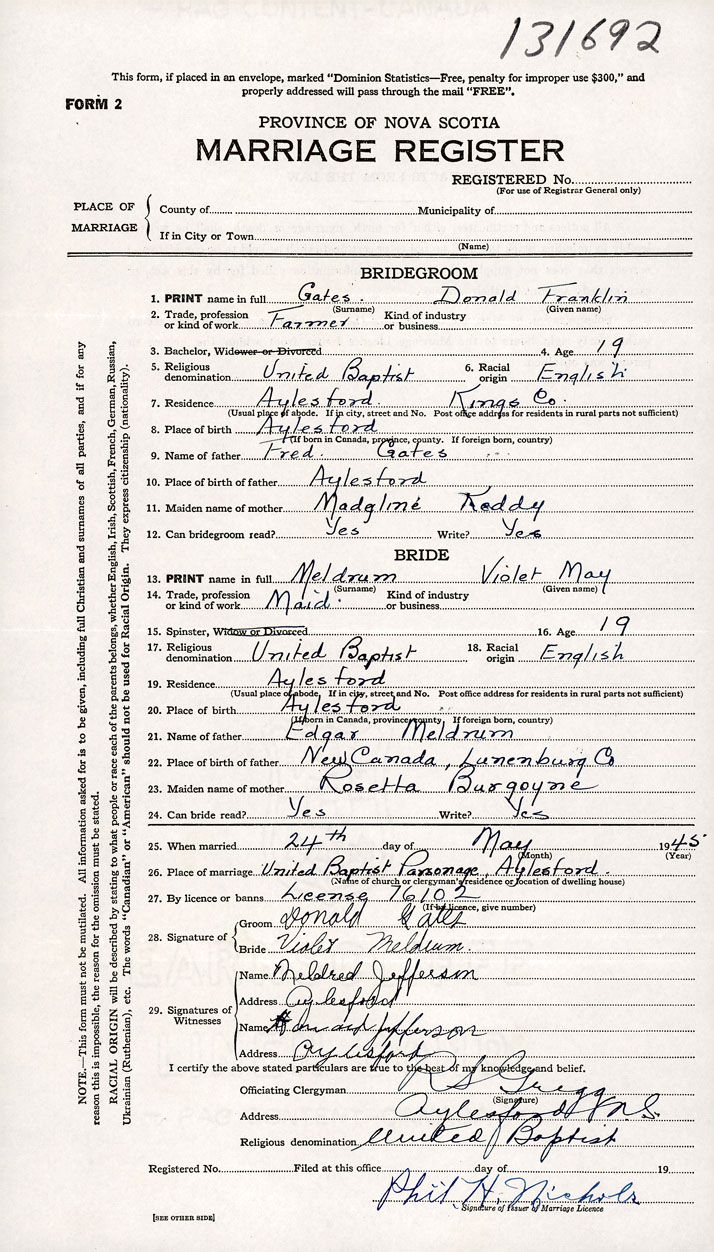 131692
This form, if placed in an envelope, marked "Dominion Statistics—Free, penalty for improper use $300," and
properly addressed will pass through the mail "FREE".
FORM 2
PROVINCE OF NOVA SCOTIA
MARRIAGE REGISTER
REGISTERED No.
(For use of Registrar General only)
PLACE OF MARRIAGE
County of Municipality of
If in City or Town
(Name)
BRIDEGROOM
1. PRINT name in full Gates. Donald Franklin
(Surname) (Given name)
2. Trade, profession or kind of work Farmer Kind of industry or business
3. Bachelor, Widower or Divorced 4. Age 19
5. Religious denomination United Baptist 6. Racial origin English
7. Residence Aylesford. Kings Co.
(Usual place of abode. If in city, street and No. Post office address for residents in rural parts not sufficient)
8. Place of birth Aylesford
(If born in Canada, province, county. If foreign born, country)
9. Name of father Fred. Gates
10. Place of birth of father Aylesford
11. Maiden name of mother Madgline Keddy
12. Can bridegroom read? Yes Write? Yes
BRIDE
13. PRINT name in full Meldrum Violet May
(Surname) (Given name)
14. Trade, profession or kind of work Maid. Kind of industry or business
15. Spinster, Widow or Divorced 16. Age 19
17. Religious denomination United Baptist 18. Racial origin English
19. Residence Aylesford
(Usual place of abode. If in city, street and No. Post office address for residents in rural parts not sufficient)
20. Place of birth Aylesford
(If born in Canada, province, county. If foreign born, country)
21. Name of father Edgar Meldrum
22. Place of birth of father New Canada, Lunenburg Co
23. Maiden name of mother Rosetta Burgoyne
24. Can bride read? Yes Write? Yes
25. When married 24th day of May 1945
(Month) (Year)
26. Place of marriage United Baptist Parsonage, Aylesford.
(Name of church or clergyman's residence or location of dwelling house)
27. By licence or banns License 76102
(If by licence, give number)
28. Signature of
Groom Donald Gates
Bride Violet Meldrum.
29. Signatures of Witnesses
Name Mildred Jefferson
Address Aylesford
Name Jefferson
Address Aylesford
I certify the above stated particulars are true to the best of my knowledge and belief.
Officiating Clergyman R S Gregg
(Signature)
Address Aylesford N.S.
Religious denomination United Baptist
Registered No. Filed at this office day of 19
Phil H. Nichols
Signature of Issuer of Marriage Licence
[SEE OTHER SIDE]
NOTE.—This form must not be mutilated. All information asked for is to be given, including full Christian and surnames of all parties, and if for any
reason this is impossible, the reason for the omission must be stated.
RACIAL ORIGIN will be described by stating to what people or race each of the parents belongs, whether English, Irish, Scottish, French, German, Russian,
Ukrainian (Ruthenian), etc. The words "Canadian" or "American" should not be used for Racial Origin. They express citizenship (nationality).